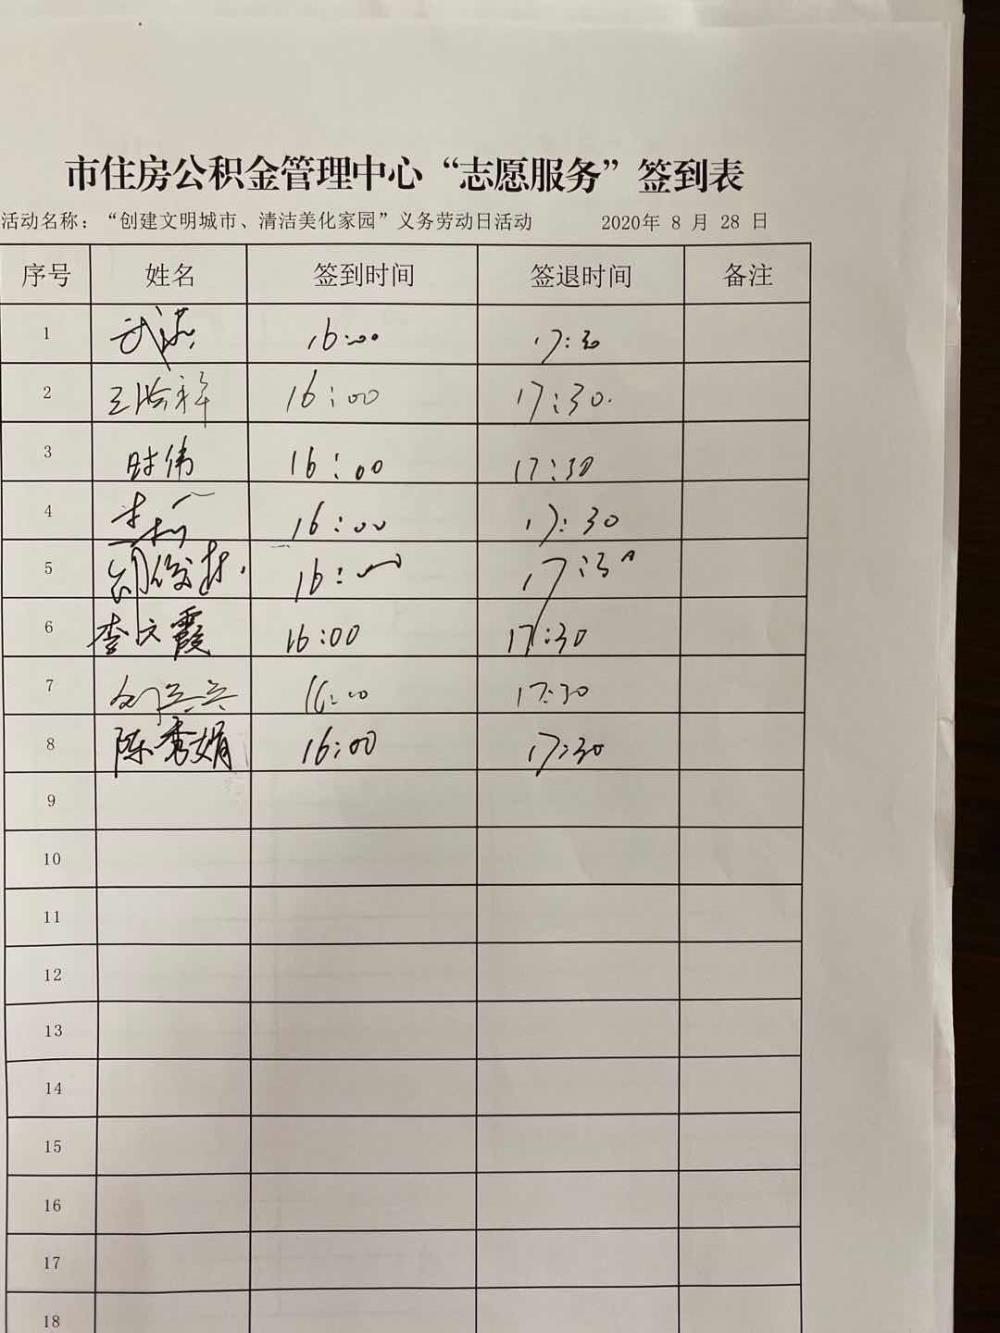 市住房公积金管理中心“志愿服务”签到表
活动名称：“创建文明城市、清洁美化家园”义务劳动日活动 2020年 8 月 28 日
序号 姓名 签到时间 签退时间 备注
1 16:00 17:30
2 16:00 17:30.
3 时伟 16:00 17:30
4 16:00 17:30
5 16:00 17:30
6 李文霞 16:00 17:30
7 16:00 17:30
8 陈秀娟 16:00 17:30
9
10
11
12
13
14
15
16
17
18